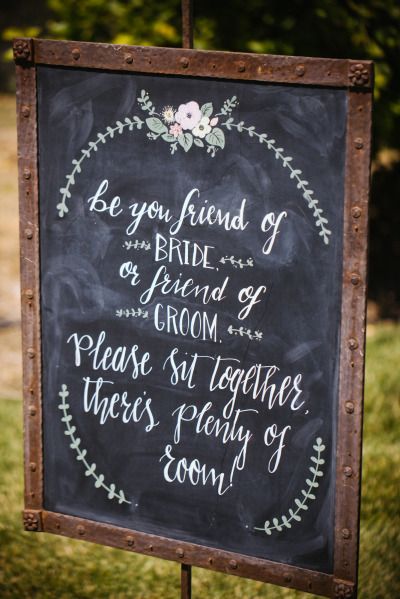 be you friend of
BRIDE.
or friend of
GROOM.
Please sit together,
there's plenty of
room!